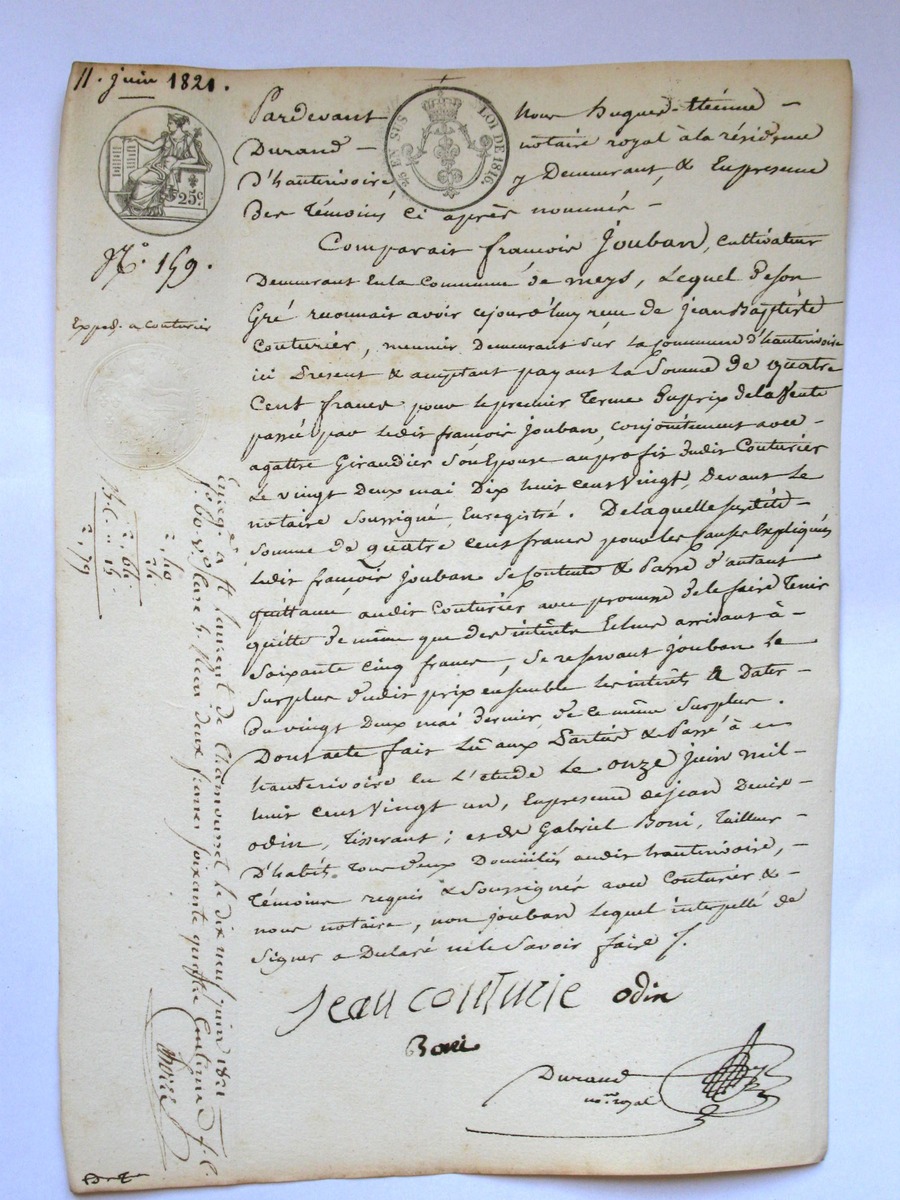 11. juin 1821.
Pardevant Nous hugues-Etienne -
Durand - notaire royal à la résidence
D'hauterivoire y Demeurant, & En presence
Des Témoins Ci après nommés -
EN SUS
LOI DE 1816.
25 c
N.° 159.
Exped. a Couturier
Comparait françois Jouban, Cultivateur
Demeurant En la Commune de meys, Lequel De son
Gré reconnait avoir cejourd'huy reçu de Jean Baptiste
Couturier, meunier Demeurant Sur la Commune d'hauterivoire
ici Present & acceptant payant la Somme de quatre
Cent francs pour le premier Terme Du prix de la Vente
passée par Ledit françois Jouban, conjointement avec
agathe Giraudier Son Epouse au profit dudit Couturier
Le vingt Deux mai Dix huit cent Vingt, Devant Le
notaire Soussigné, Enregistré. De laquelle Susdite
Somme de quatre cent francs pour les Causes Expliquées
Ledit françois Jouban Se Contente & Passe d'autant
quittance audit Couturier avec promesse de le faire Tenir
quitte De même que des intérêts Echus arrivant à -
Soixante Cinq francs, Se reservant Jouban Le
Surplus dudit prix ensemble les intérêts à Dater -
Du vingt Deux mai dernier de ce même Surplus.
Dont acte fait Lu aux Parties & Passé à
hauterivoire en L'etude Le onze juin mil -
huit cent Vingt un, En presence de jean Denis -
odin, Tisserant; et de Gabriel Boni, Tailleur -
D'habits Tous deux Domiciliés audit hauterivoire, -
Témoins requis & Soussignés avec Couturier & -
nous notaire, non jouban Lequel interpellé de
Signer a Declaré ne le Savoir faire /.
Jean couturie odin
Boni
Durand
no.re royal
Enreg. à St laurent de Chamousset le dix neuf juin 1821
f.° 60 v.° Case 5. Reçu deux francs soixante quatre centimes